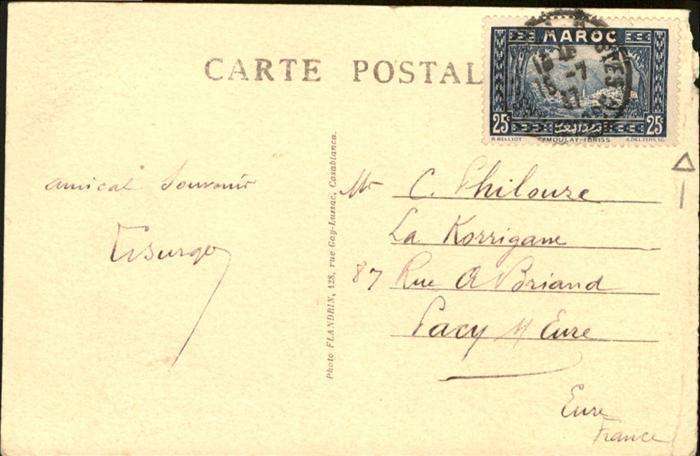 CARTE POSTALE
MAROC
25c 25c
MOULAY-IDRISS
amical Souvenir
Mr C. Philouze
La Korrigane
87 Rue A Briand
Pacy s/ Eure
Eure
France
Photo FLANDRIN, 128, rue Gay-Lussac, Casablanca.